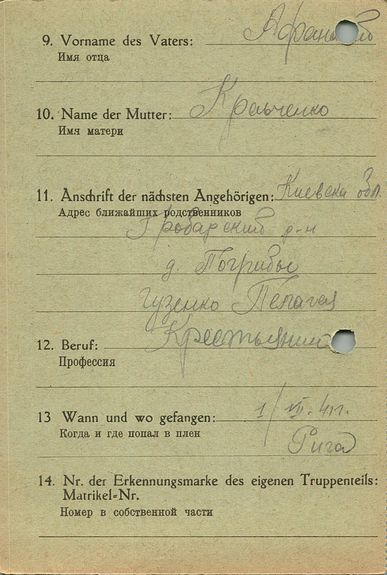 9. Vorname des Vaters:
Имя отца
10. Name der Mutter: Кравченко
Имя матери
11. Anschrift der nächsten Angehörigen: Киевска обл.
Адрес ближайших родственников
р-н
д. Погрибы
Гузенко Пелагея
12. Beruf: Крестьянин
Профессия
13 Wann und wo gefangen: 1/VII. 41г.
Когда и где попал в плен
Рига
14. Nr. der Erkennungsmarke des eigenen Truppenteils:
Matrikel-Nr.
Номер в собственной части